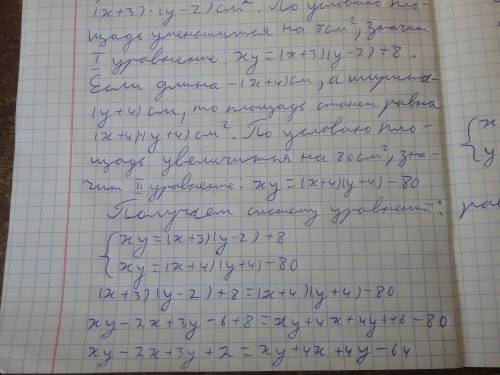 (x+3)·(y-2) см². По условию пло-
щадь уменьшится на 8см², значит
I уравнение: xy=(x+3)(y-2)+8.
Если длина -(x+4)см, а ширина-
(y+4)см, то площадь станет равна
(x+4)(y+4)см². По условию пло-
щадь увеличится на 80см², зна-
чит II уравнение: xy=(x+4)(y+4)-80
Получаем систему уравнений:
{xy=(x+3)(y-2)+8
{xy=(x+4)(y+4)-80
(x+3)(y-2)+8=(x+4)(y+4)-80
xy-2x+3y-6+8=xy+4x+4y+16-80
xy-2x+3y+2=xy+4x+4y-64
{x
{y
рав